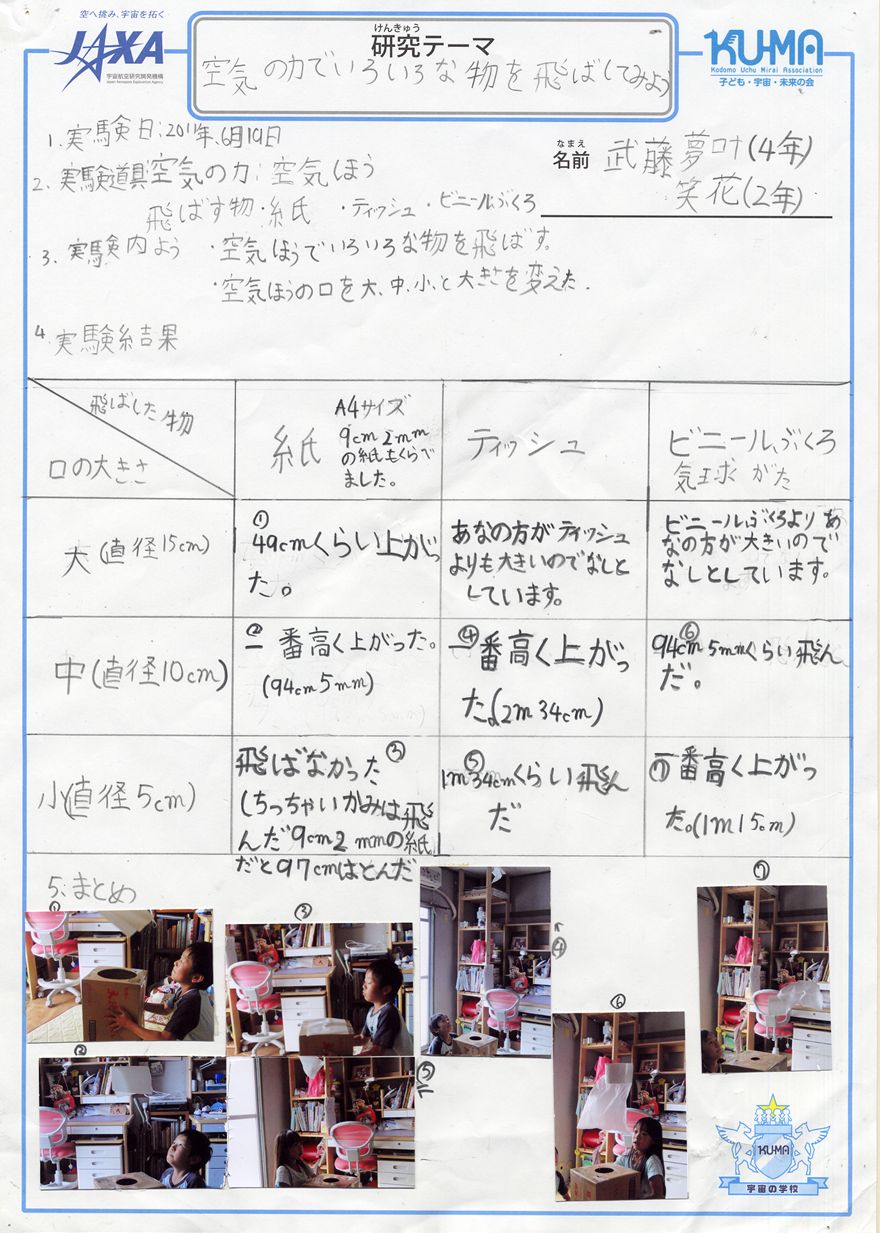 空へ挑み、宇宙を拓く
JAXA
宇宙航空研究開発機構
Japan Aerospace Exploration Agency
けんきゅう
研究テーマ
空気の力でいろいろな物を飛ばしてみよう
KU-MA
Kodomo Uchu Mirai Association
子ども・宇宙・未来の会
1.実験日:2011年、6月19日
なまえ
名前 武藤夢叶(4年)
笑花(2年)
2.実験道具空気の力:空気ほう
飛ばす物・紙 ・ティッシュ・ビニールぶくろ
3.実験内よう ・空気ほうでいろいろな物を飛ばす。
・空気ほうの口を大、中、小、と大きさを変えた.
4.実験結果
飛ばした物
口の大きさ
紙 A4サイズ
9cm2mm
の紙もくらべ
ました。
ティッシュ
ビニールぶくろ
気球がた
大(直径15cm)
①
49cmくらい上がっ
た。
あなの方がティッシュ
よりも大きいのでなしと
しています。
ビニールぶくろよりあ
なの方が大きいので
なしとしています。
中(直径10cm)
②
一番高く上がった。
(94cm5mm)
④
一番高く上がっ
た。(2m34cm)
⑥
94cm5mmくらい飛ん
だ。
小(直径5cm)
飛ばなかった③
(ちっちゃいかみは飛
んだ9cm2mmの紙
だと97cmはとんだ
⑤
1m34cmくらい飛ん
だ
⑦一番高く上がっ
た。(1m15cm)
5、まとめ
①
③
④
⑦
②
⑤
⑥
KU-MA
宇宙の学校